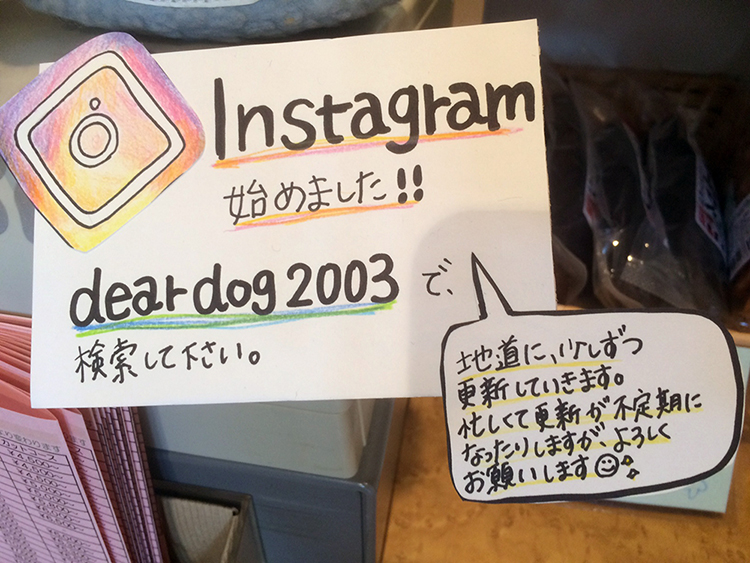 Instagram
始めました!!
deardog2003で、
検索して下さい。
地道に、少しずつ
更新していきます。
忙しくて更新が不定期に
なったりしますが、よろしく
お願いします